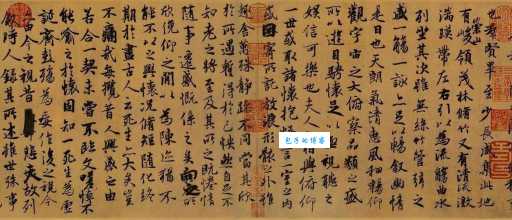 也羣賢畢至少長咸集此地
有崇山峻領茂林脩竹又有清流激
湍暎帶左右引以為流觴曲水
列坐其次雖無絲竹管弦之
盛一觴一詠亦足以暢敘幽情
是日也天朗氣清惠風和暢仰
觀宇宙之大俯察品類之盛
所以遊目騁懷足以視聽之
娛信可樂也夫人與俯仰
一世或取諸懷抱言一室之內
或因寄所託放浪形骸之外雖
趣舍萬殊靜躁不同當其欣
於所遇蹔得於己怏然自足不
知老之將至及其所之既惓情
隨事遷感慨係之矣向之所
欣俛仰之閒以為陳迹猶不
能不以之興懷況脩短隨化終
期於盡古人云死生亦大矣豈
不痛哉每攬昔人興感之由
若合一契未嘗不臨文嗟悼不
能喻之於懷固知一死生為虛
誕齊彭殤為妄作後之視今
亦由今之視昔悲夫故列
敘時人錄其所述雖世殊事
包子的博客